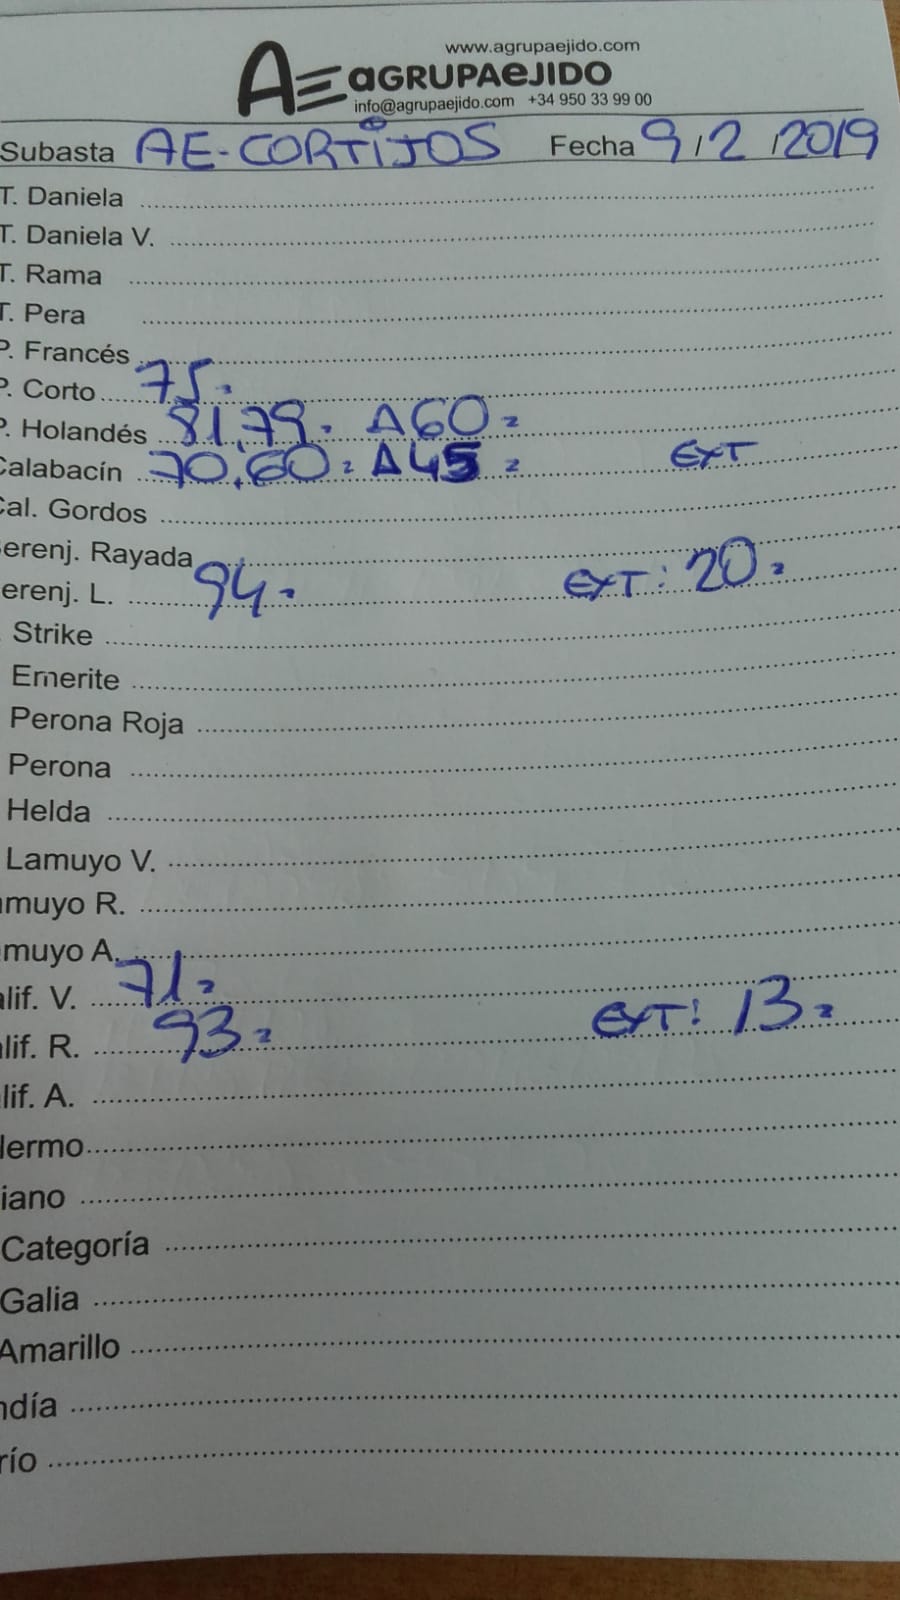 www.agrupaejido.com
AE aGRUPAeJIDO
info@agrupaejido.com +34 950 33 99 00
Subasta AE-CORTIJOS Fecha 9/2/2019
T. Daniela
T. Daniela V.
T. Rama
T. Pera
P. Francés
P. Corto 75.
P. Holandés 81,79. A60=
Calabacín 70,60= A45= EXT
Cal. Gordos
erenj. Rayada
erenj. L. 94. EXT: 20.
Strike
Emerite
Perona Roja
Perona
Helda
Lamuyo V.
muyo R.
muyo A.
alif. V. 71=
alif. R. 93= EXT: 13=
lif. A.
lermo
iano
Categoría
Galia
Amarillo
ndía
río